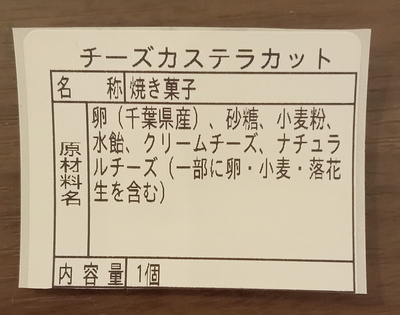 チーズカステラカット
名称 焼き菓子
原材料名 卵（千葉県産）、砂糖、小麦粉、
水飴、クリームチーズ、ナチュラ
ルチーズ（一部に卵・小麦・落花
生を含む）
内容量 1個